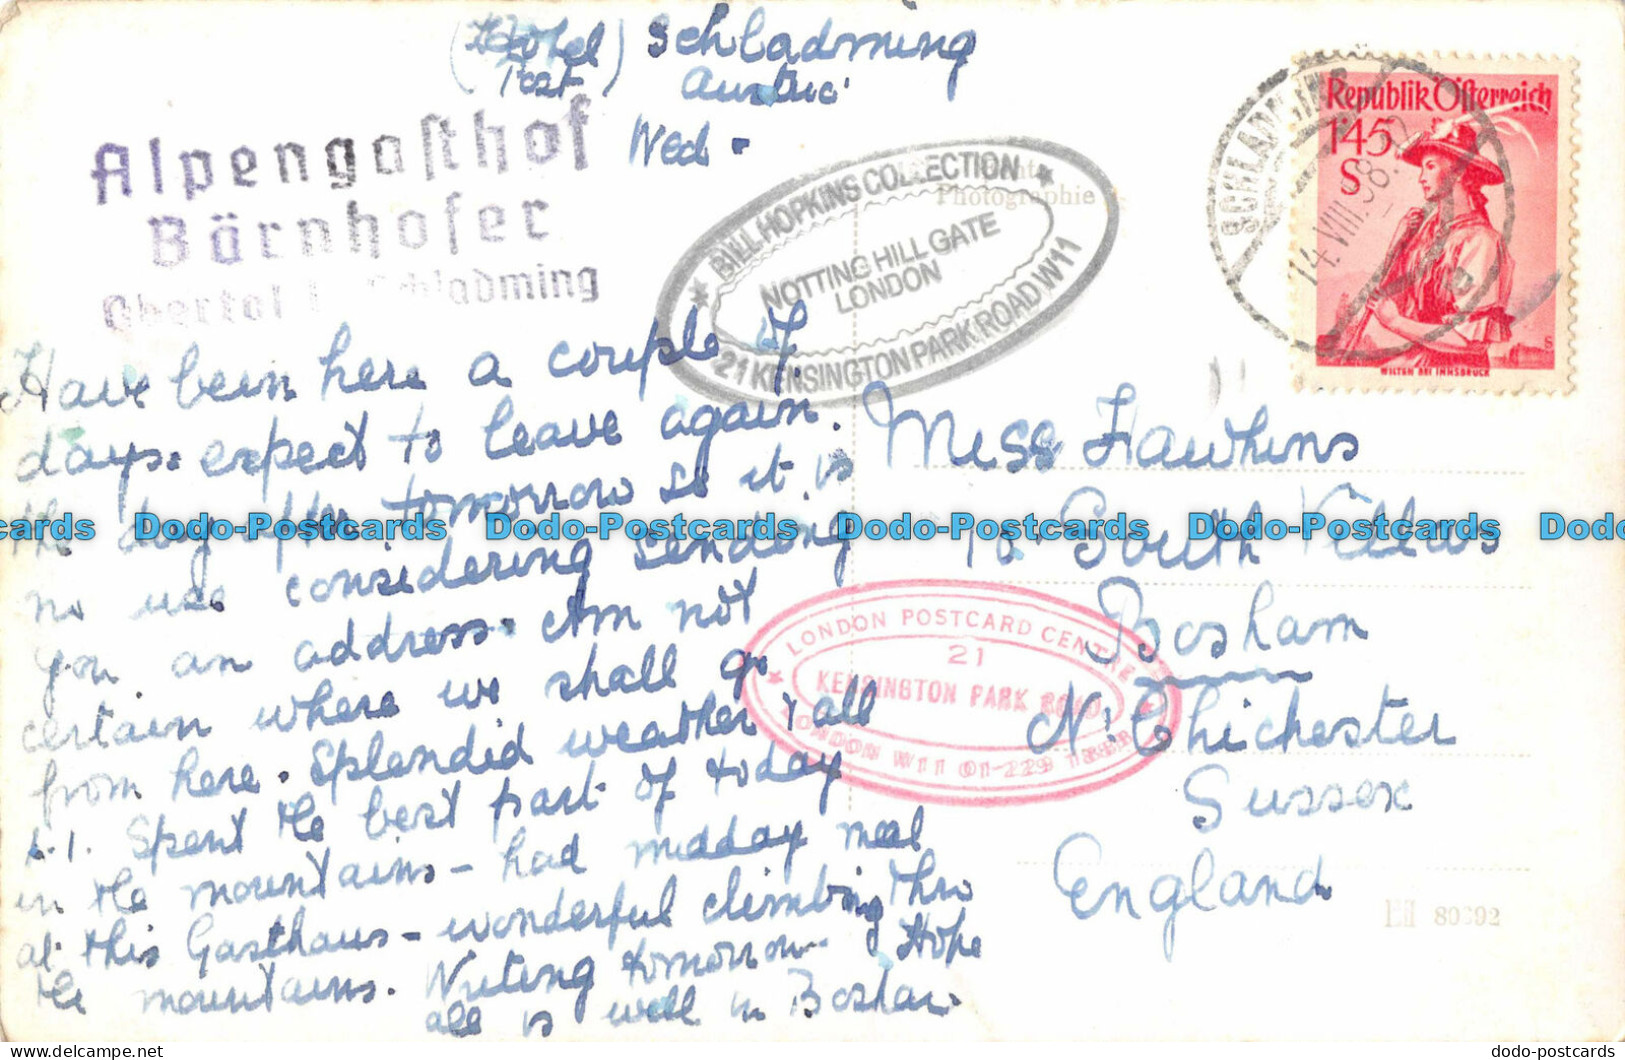 (Hotel) Schladming
Post Austria
Wed -
Alpengasthof
Bärnhofer
Obertal b. Schladming
BILL HOPKINS COLLECTION
NOTTING HILL GATE
LONDON
21 KENSINGTON PARK ROAD W11
Photographie
SCHLADMING
14.VIII.58
Republik Österreich
145
S
WILTEN BEI INNSBRUCK
Have been here a couple of
days. expect to leave again.
the day after tomorrow so it is
no use considering sending
you an address. Am not
certain where we shall go
from here. Splendid weather & all
Spent the best part of today
in the mountains - had midday meal
at this Gasthaus - wonderful climbing thro
the mountains. Writing tomorrow. Hope
all is well in Bosham
Miss Hawkins
South Villas
Bosham
Nr Chichester
Sussex
England
LONDON POSTCARD CENTRE
21
KENSINGTON PARK ROAD
LONDON W11 01-229 1888
Dodo-Postcards Dodo-Postcards Dodo-Postcards Dodo-Postcards
dodo-postcards